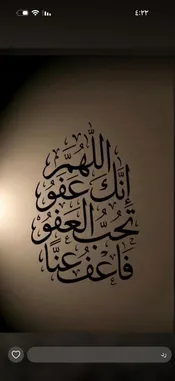 ٤:٢٣
اللَّهُمَّ
إِنَّكَ عَفُوٌّ
تُحِبُّ العَفْوَ
فَاعْفُ عَنَّا
رد